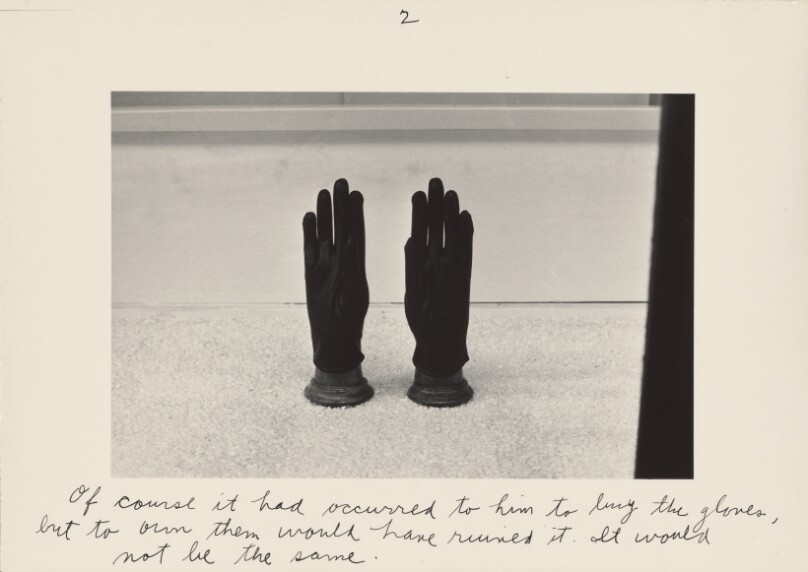 2
Of course it had occurred to him to buy the gloves,
but to own them would have ruined it. It would
not be the same.